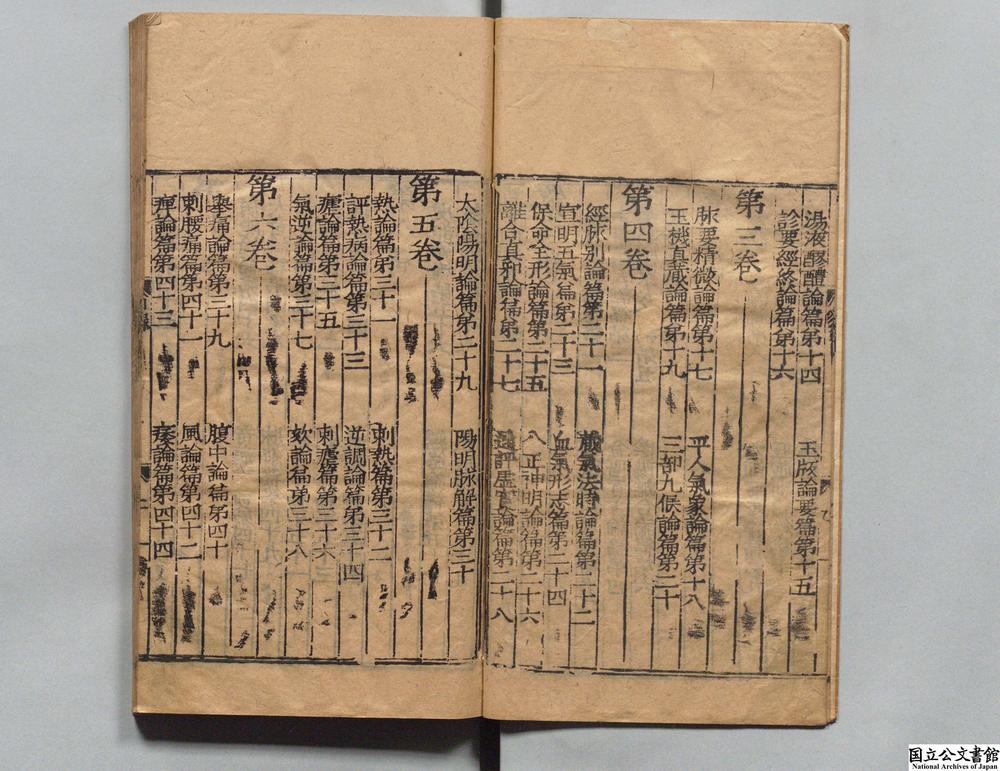 湯液醪醴論篇第十四　玉版論要篇第十五
診要經終論篇第十六
第三卷
脉要精微論篇第十七　平人氣象論篇第十八
玉機真藏論篇第十九　三部九候論篇第二十
第四卷
經脉別論篇第二十一　藏氣法時論篇第二十二
宣明五氣篇第二十三　血氣形志篇第二十四
保命全形論篇第二十五　八正神明論篇第二十六
離合真邪論篇第二十七　通評虛實論篇第二十八
太陰陽明論篇第二十九　陽明脉解篇第三十
第五卷
熱論篇第三十一　刺熱篇第三十二
評熱病論篇第三十三　逆調論篇第三十四
瘧論篇第三十五　刺瘧篇第三十六
氣逆論篇第三十七　欬論篇第三十八
第六卷
舉痛論篇第三十九　腹中論篇第四十
刺腰痛篇第四十一　風論篇第四十二
痺論篇第四十三　痿論篇第四十四
国立公文書館
National Archives of Japan